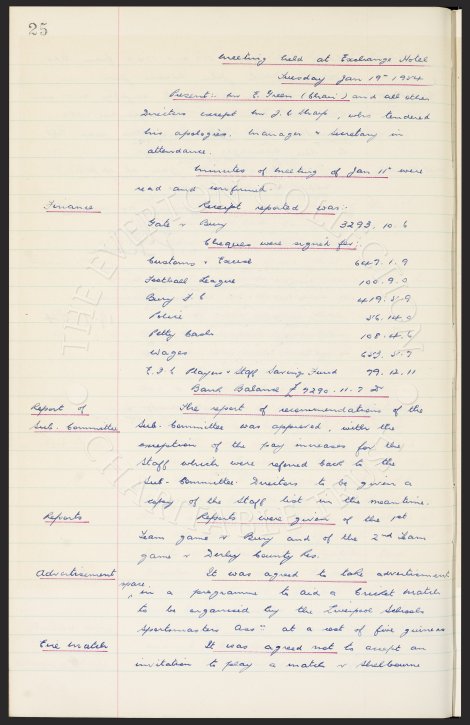 25
Meeting held at Exchange Hotel
Tuesday Jan 19th 1954
Present:- Mr E. Green (Chair) and all other
Directors except Mr J. C Sharp, who tendered
his apologies. Manager & Secretary in
attendance.
Minutes of Meeting of Jan 11th were
read and confirmed
Finance Receipt reported was:-
Gate v Bury 3293. 10. 6
Cheques were signed for:-
Customs & Excise 647. 1. 9
Football League 100. 9. 0
Bury F. C 419. 5. 9
Police 56. 14. 0
Petty Cash 108. 4. 6
Wages 653. 5. 9
E. F. C Players & Staff Savings Fund 79. 12. 11
Bank Balance £ 9290. 11. 7
Report of The report of recommendations of the
Sub. Committee Sub-Committee was approved, with the
exception of the pay increases for the
Staff which were referred back to the
Sub-Committee. Directors to be given a
copy of the Staff list in the meantime.
Reports Reports were given of the 1st
Team game v Bury and of the 2nd Team
game v Derby County Res.
Advertisement It was agreed to take advertisement
space
in a programme to aid a Cricket Match
to be organised by the Liverpool Schools
Sportsmasters Assn at a cost of five guineas
Eire Match It was agreed not to accept an
invitation to play a match v Shelbourne
THE EVERTON COLLECTION
CHARITABLE TRUST